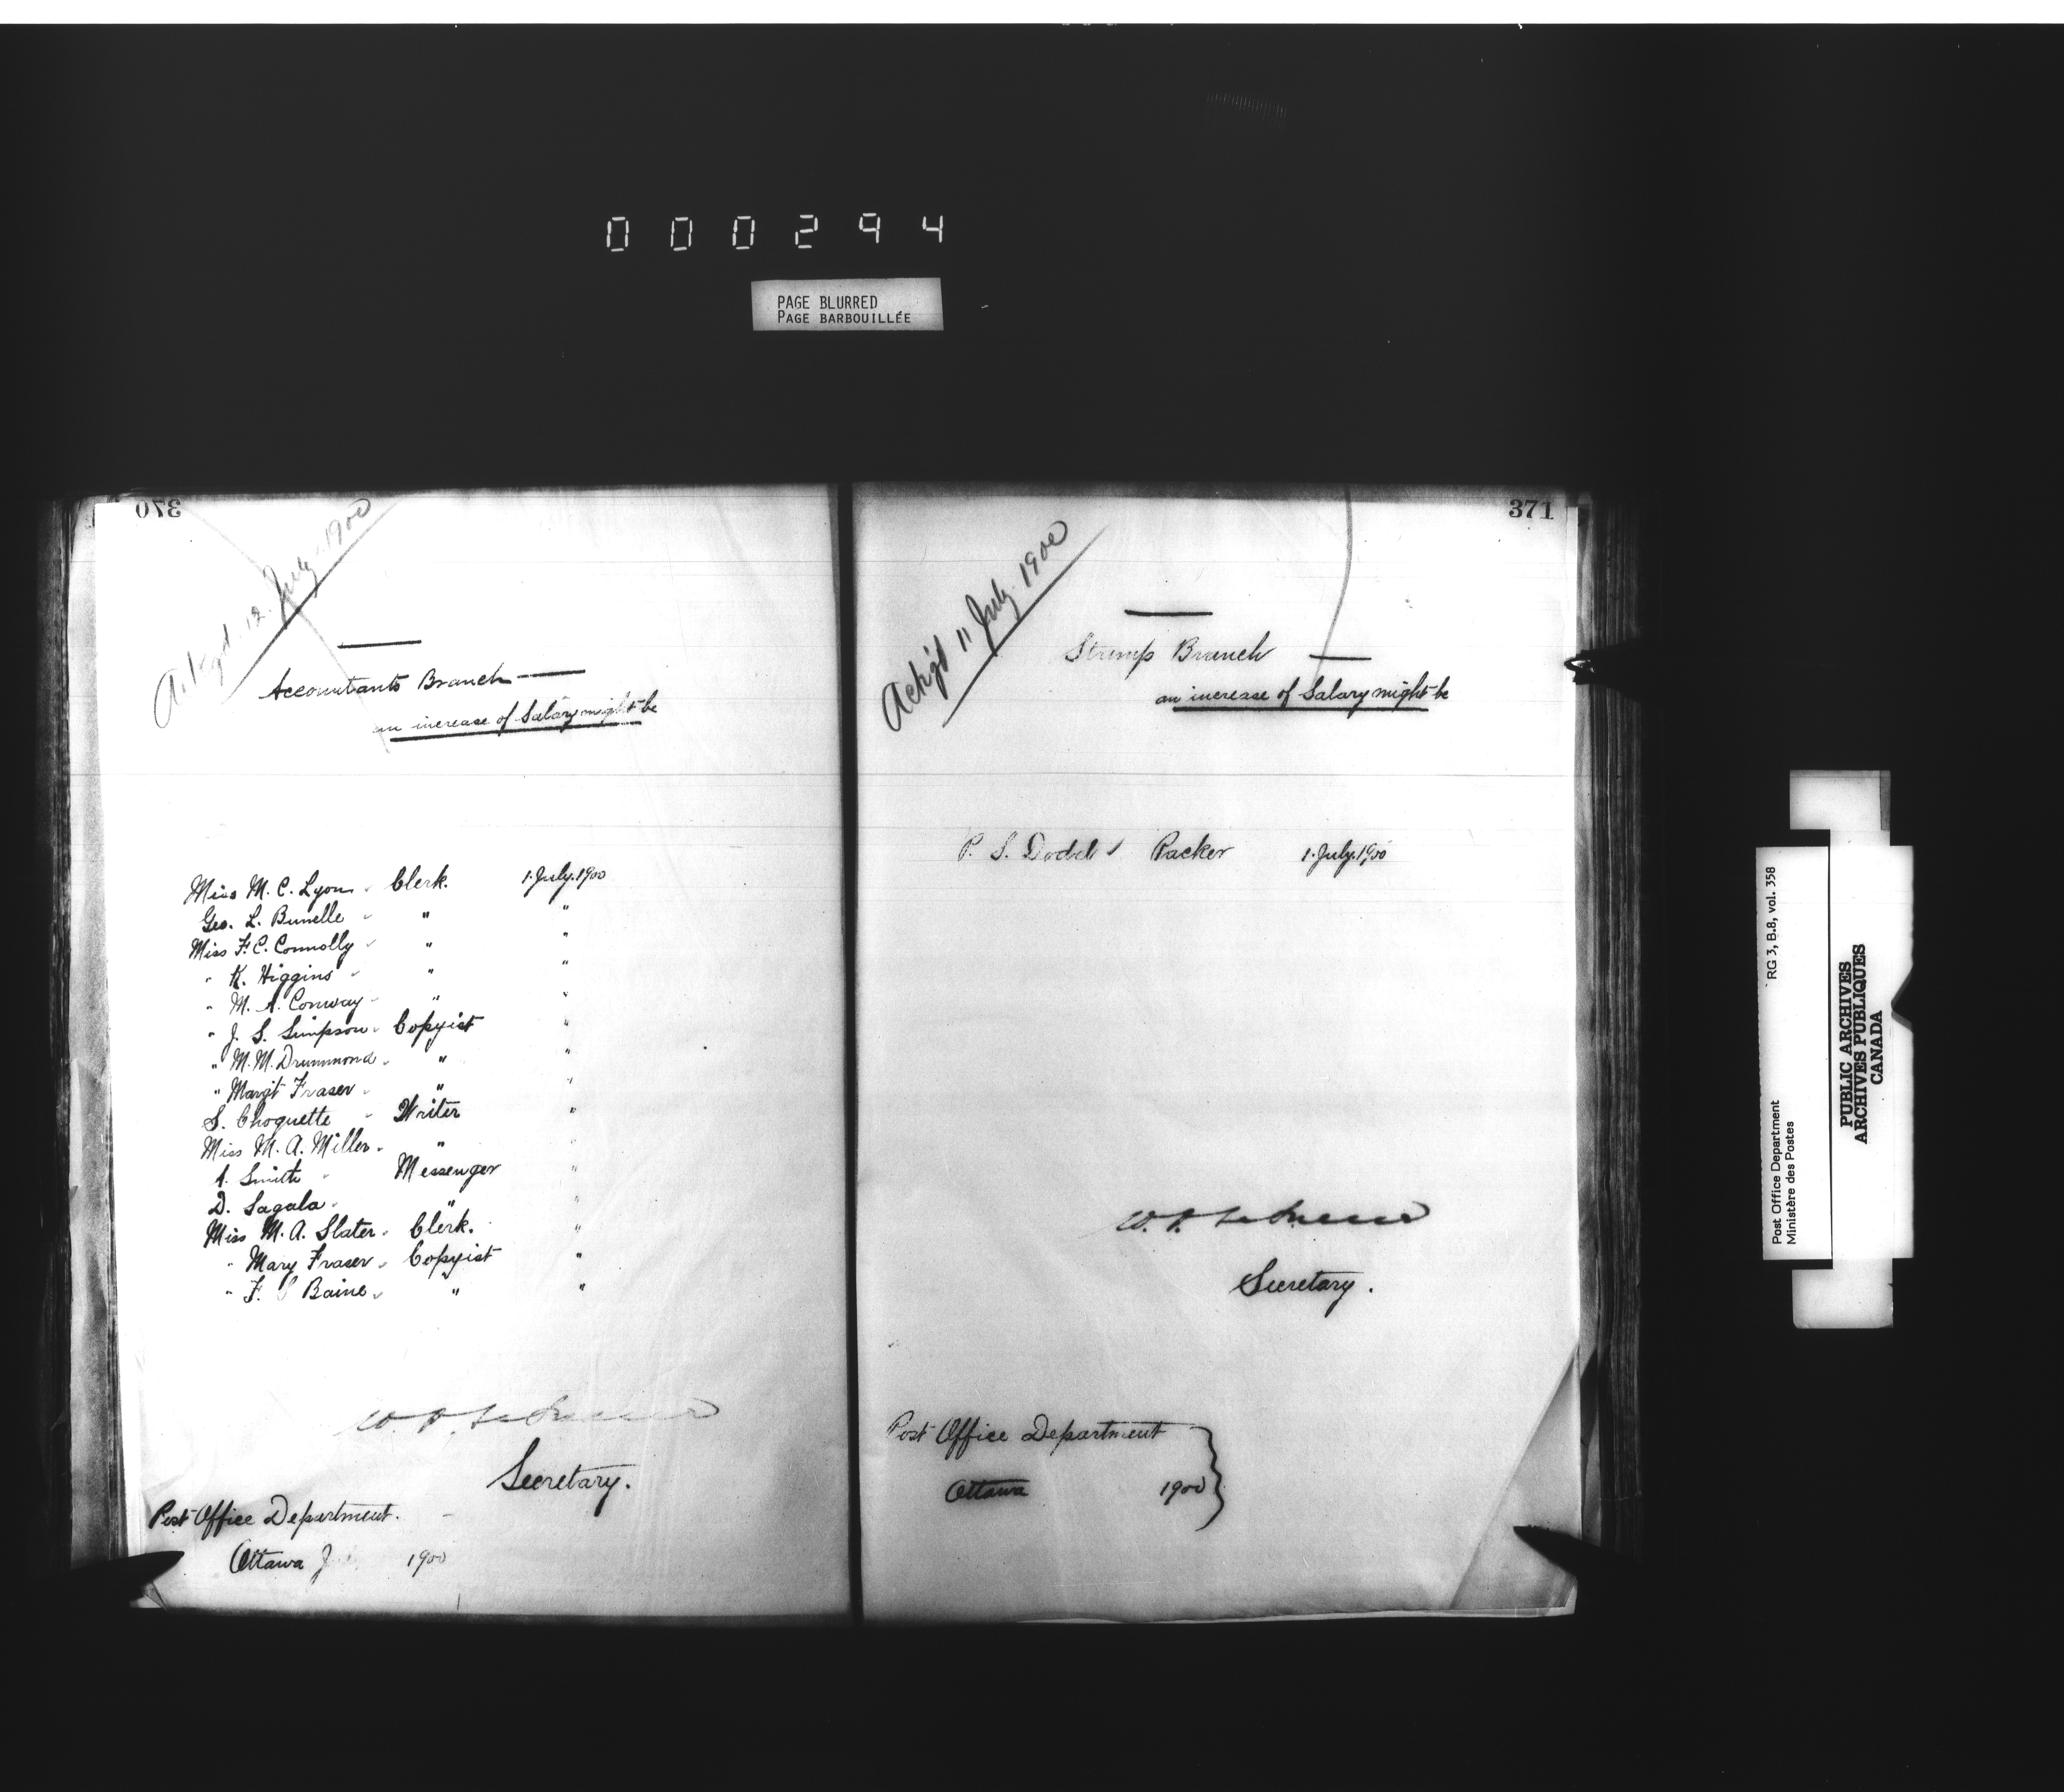 000294
PAGE BLURRED
PAGE BARBOUILLÉE
370
Ack'gd 12 July 1900
Accountants Branch
an increase of Salary might be
Miss M. C. Lyon Clerk. 1. July. 1900
Geo. L. Bunelle " "
Miss F. C. Connolly " "
" K. Higgins " "
" M. A. Conway " "
" J. S. Simpson Copyist "
" M. M. Drummond " "
" Margt Fraser " "
S. Choquette Writer "
Miss M. A. Miller " "
A. Smith Messenger "
D. Lagala " "
Miss M. A. Slater Clerk. "
" Mary Fraser Copyist "
" F. S Baine " "
Secretary.
Post Office Department.
Ottawa 1900
371
Ack'gd 11 July 1900
Stamp Branch
an increase of Salary might be
P. S. Dodd Packer 1. July. 1900
Secretary.
Post Office Department
Ottawa 1900
Post Office Department RG 3, B.8, vol. 358
Ministère des Postes
PUBLIC ARCHIVES
ARCHIVES PUBLIQUES
CANADA